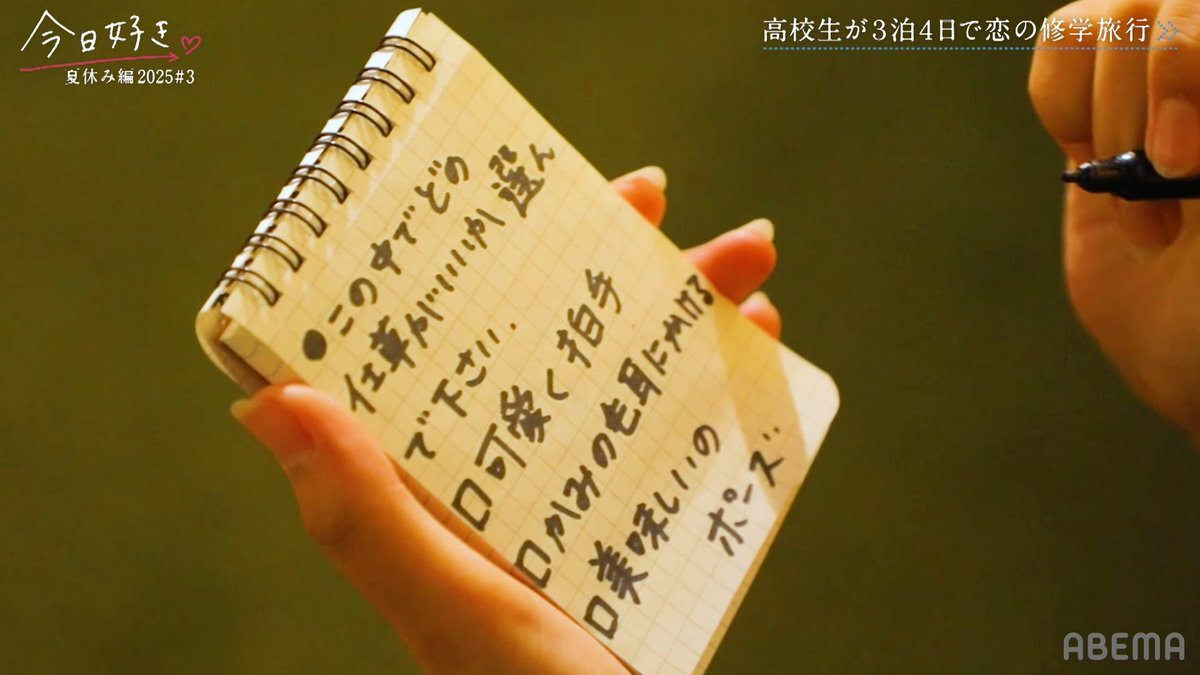 今日好き♡
夏休み編2025#3
高校生が3泊4日で恋の修学旅行
●この中でどの
仕草がいいか選ん
で下さい.
□可愛く拍手
□かみの毛耳にかける
□美味しいの
ポーズ
ABEMA